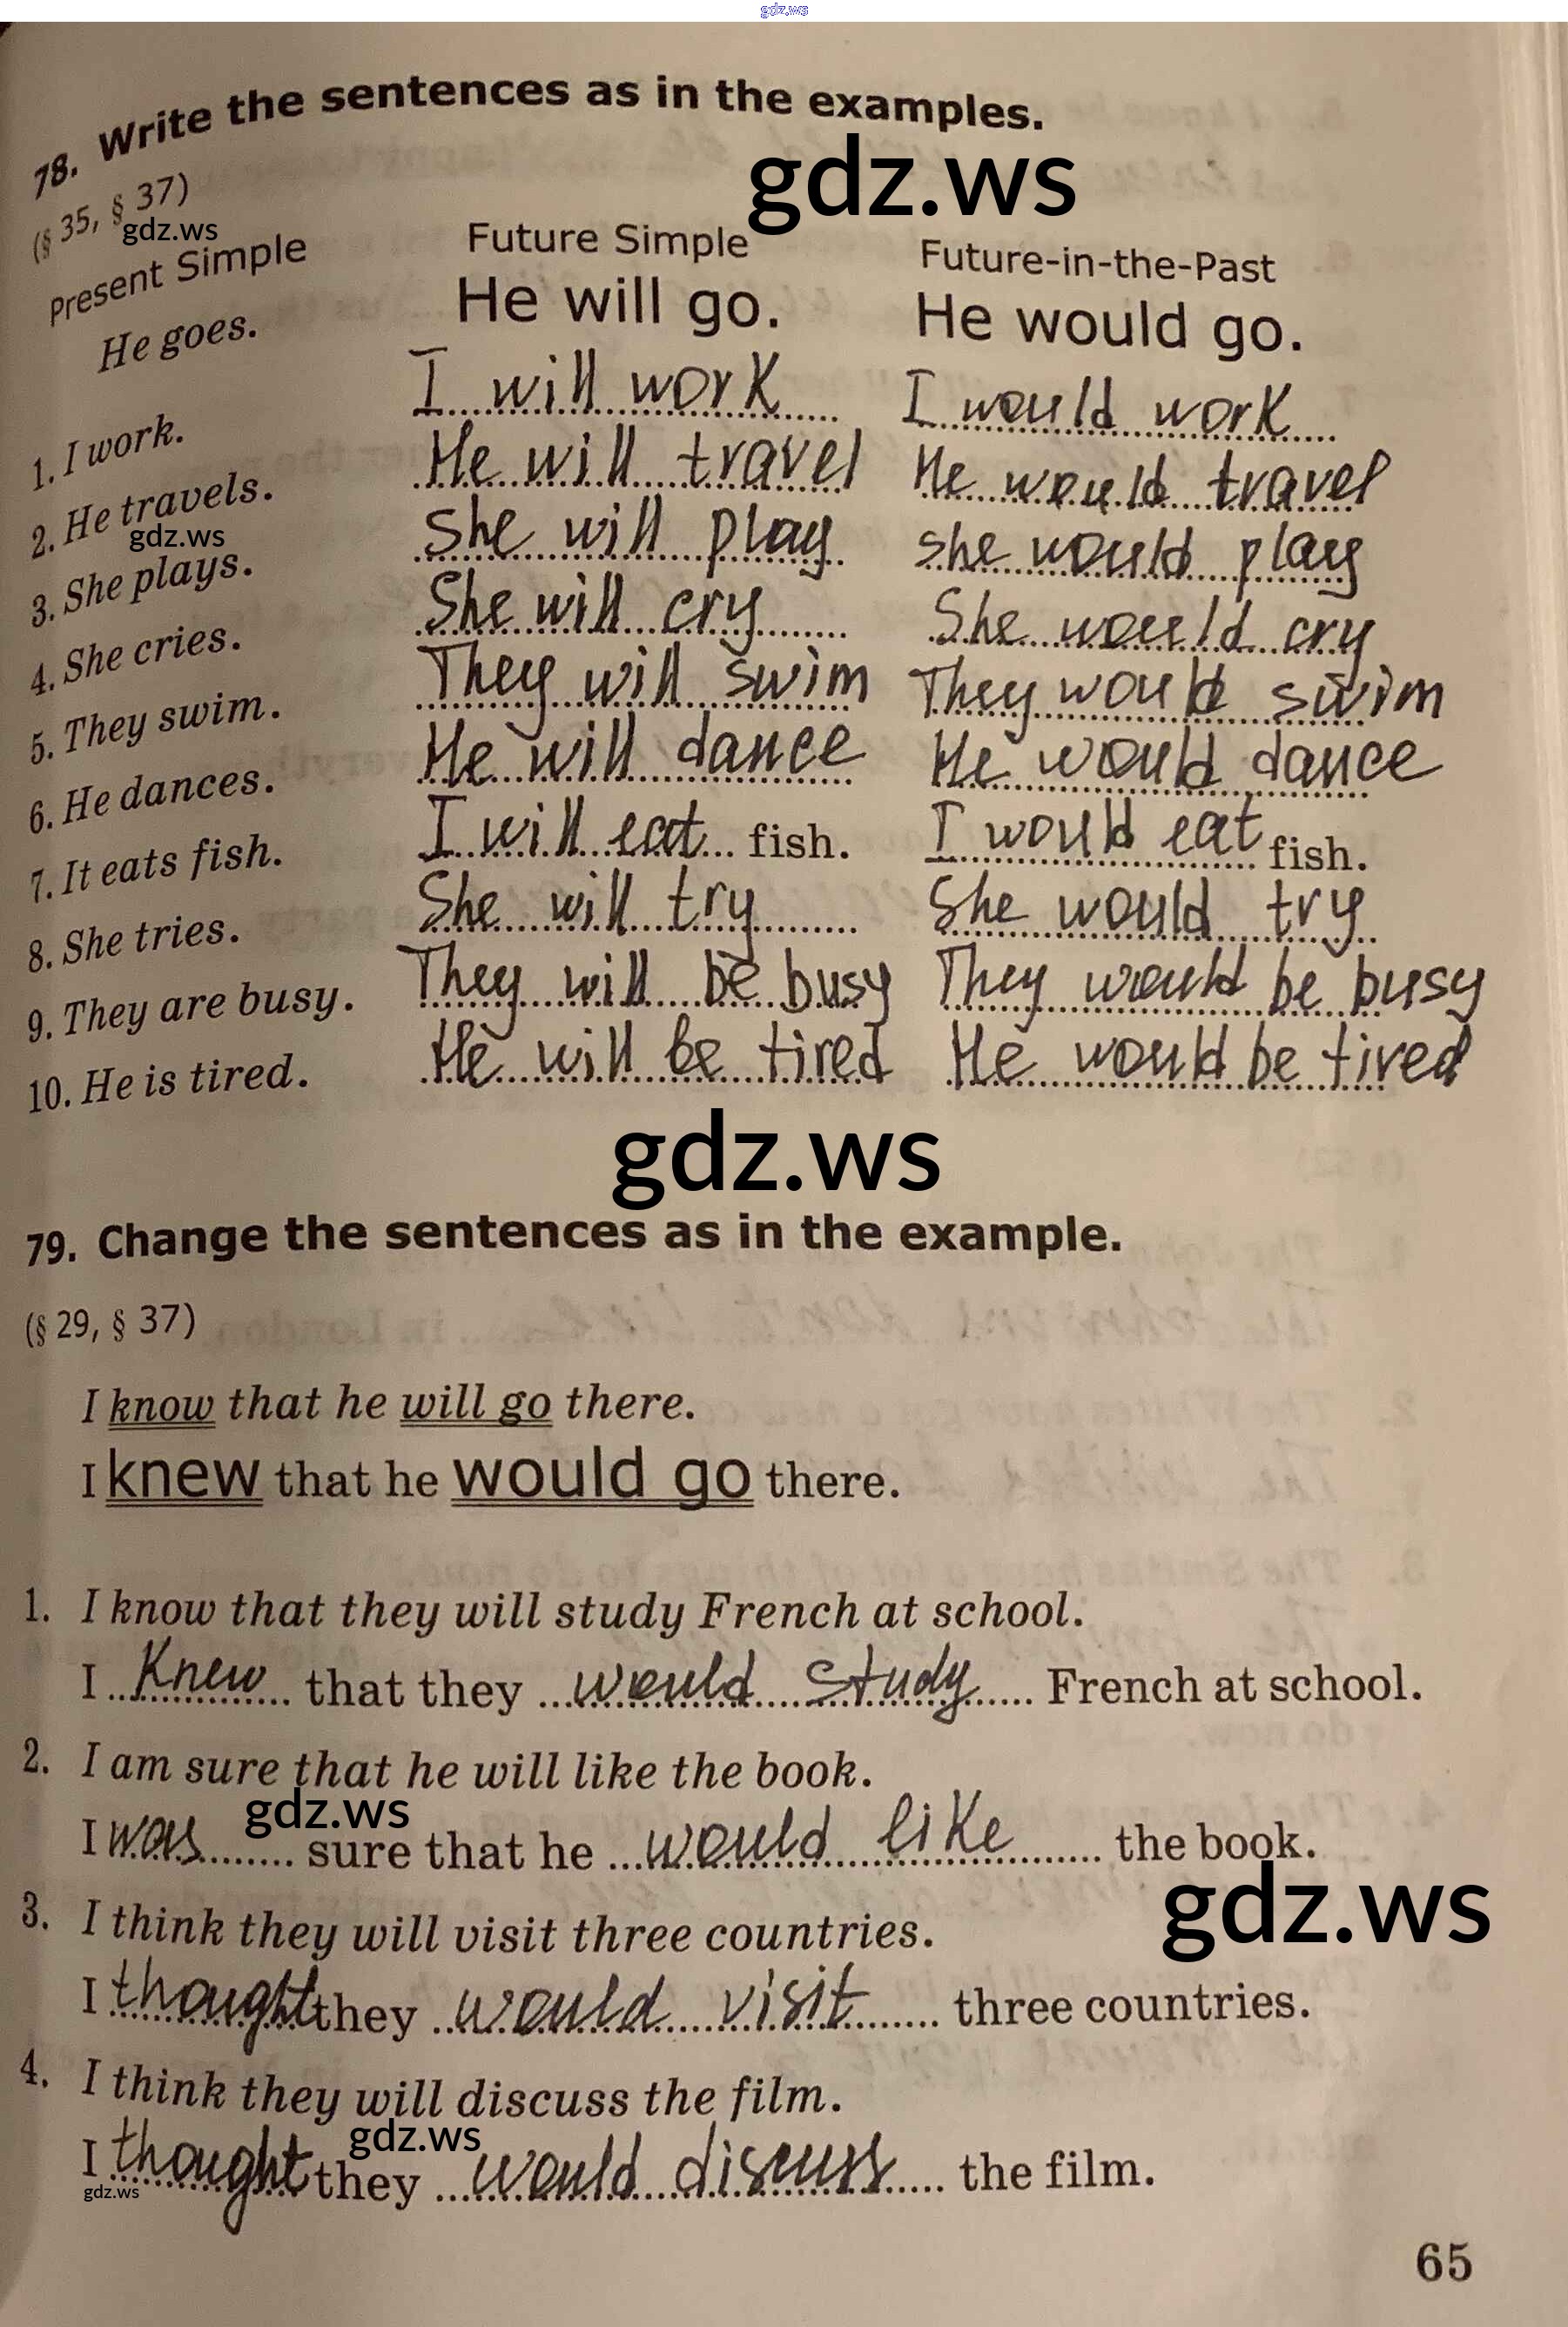 gdz.ws
78. Write the sentences as in the examples.
gdz.ws
(§ 35, § 37)
gdz.ws
Present Simple Future Simple Future-in-the-Past
He goes. He will go. He would go.
1. I work. I will work I would work
2. He travels. He will travel He would travel
gdz.ws
3. She plays. She will play she would play
4. She cries. She will cry She would cry
5. They swim. They will swim They would swim
6. He dances. He will dance He would dance
7. It eats fish. I will eat fish. I would eat fish.
8. She tries. She will try She would try
9. They are busy. They will be busy They would be busy
10. He is tired. He will be tired He would be tired
gdz.ws
79. Change the sentences as in the example.
(§ 29, § 37)
I know that he will go there.
I knew that he would go there.
1. I know that they will study French at school.
I knew that they would study French at school.
2. I am sure that he will like the book.
gdz.ws
I was sure that he would like the book.
gdz.ws
3. I think they will visit three countries.
I thought they would visit three countries.
4. I think they will discuss the film.
gdz.ws
I thought they would discuss the film.
gdz.ws
65